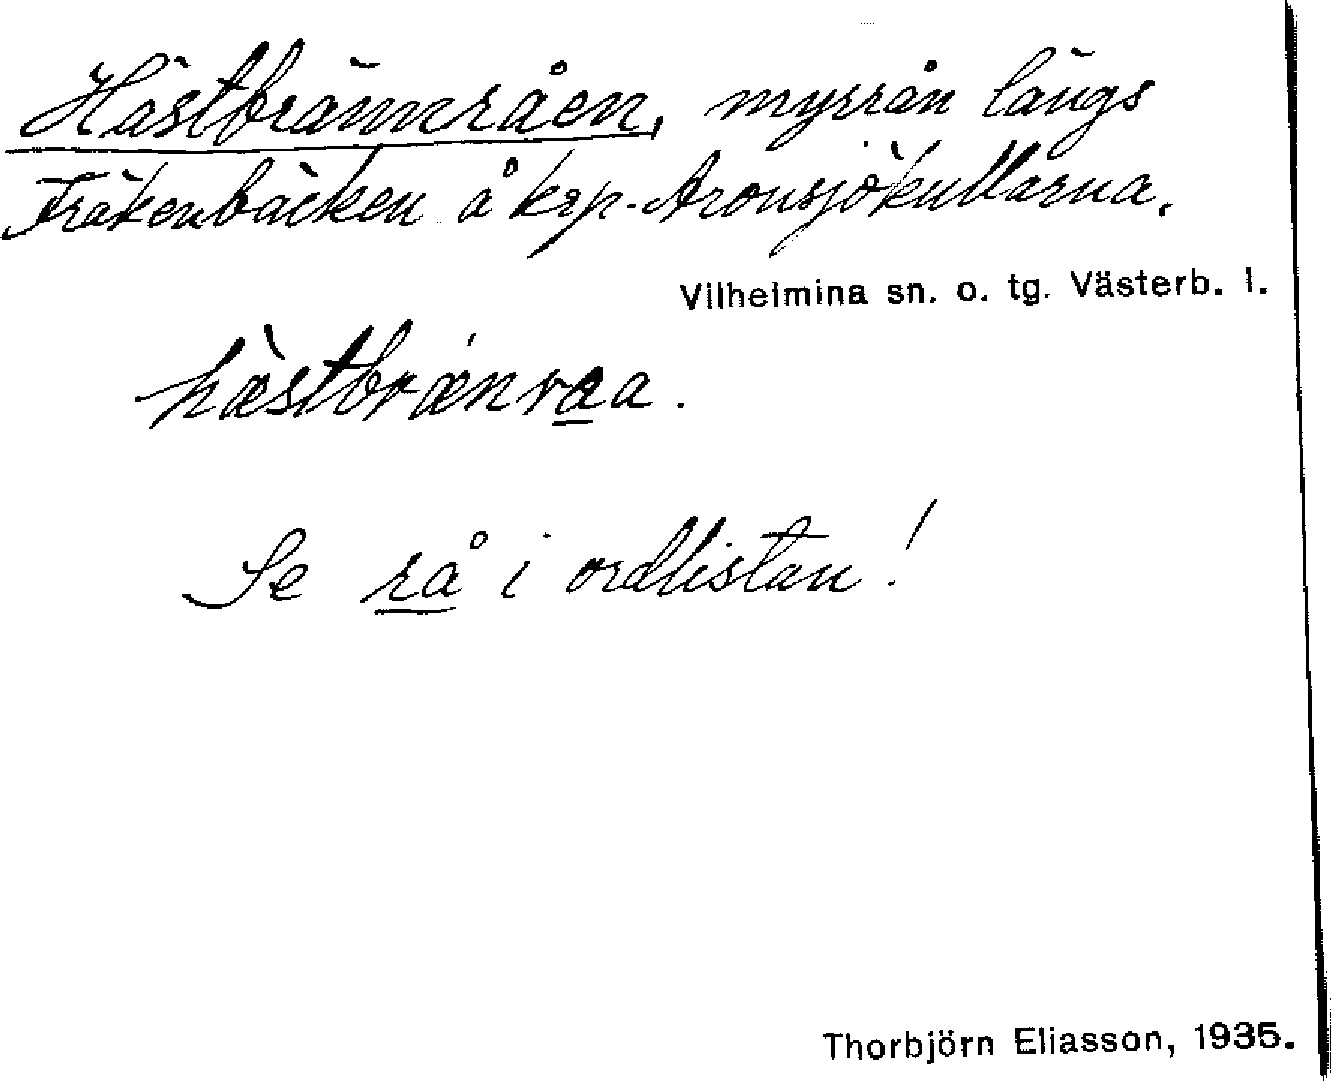 Hästbrännråen, myrrån längs
Fräkenbäcken å krp. Aronsjökullarna.
Vilhelmina sn. o. tg. Västerb. l.
hæ̀stbrǽnraa.
Se rå i ordlistan!
Thorbjörn Eliasson, 1935.